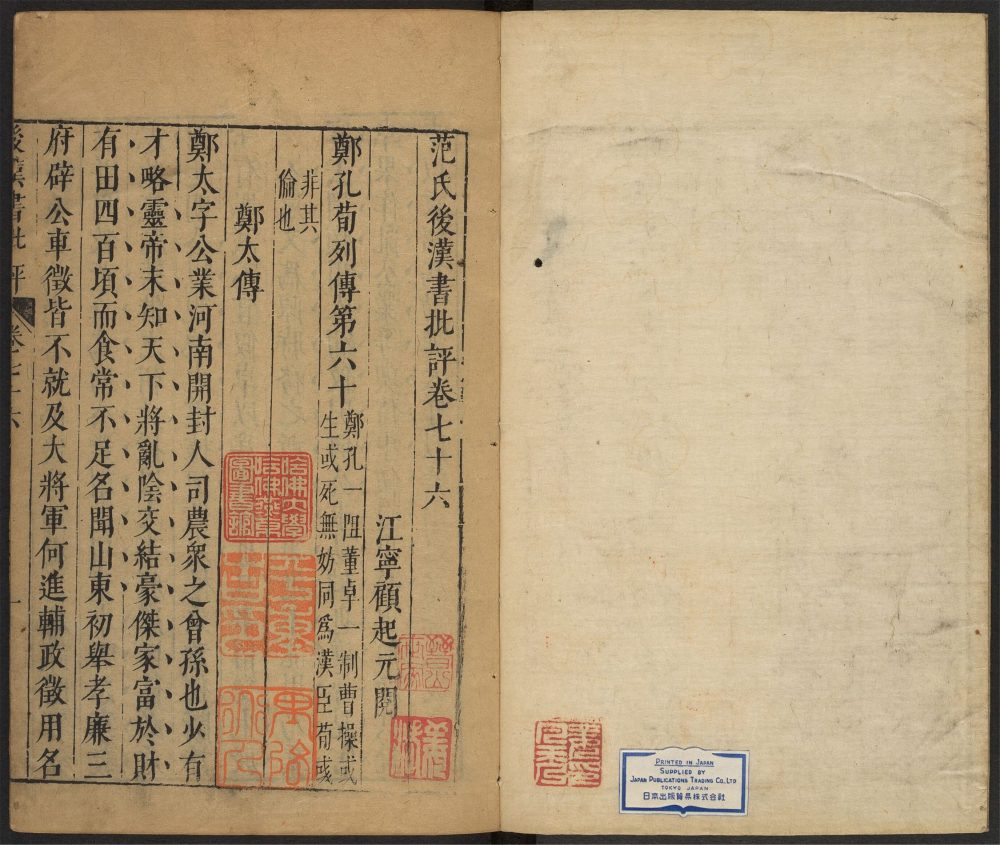 范氏後漢書批評卷七十六
江寧顧起元閱
鄭孔荀列傳第六十
鄭孔一阻董卓一制曹操或
生或死無妨同為漢臣荀彧
非其
倫也
鄭太傳
鄭太字公業河南開封人司農衆之曾孫也少有
才略靈帝末知天下將亂陰交結豪傑家富於財
有田四百頃而食常不足名聞山東初舉孝廉三
府辟公車徵皆不就及大將軍何進輔政徵用名
後漢書批評
卷七十六
一
哈佛大學
哈佛燕京
圖書館
PRINTED IN JAPAN
SUPPLIED BY
JAPAN PUBLICATIONS TRADING CO., LTD
TOKYO JAPAN
日本出版貿易株式会社